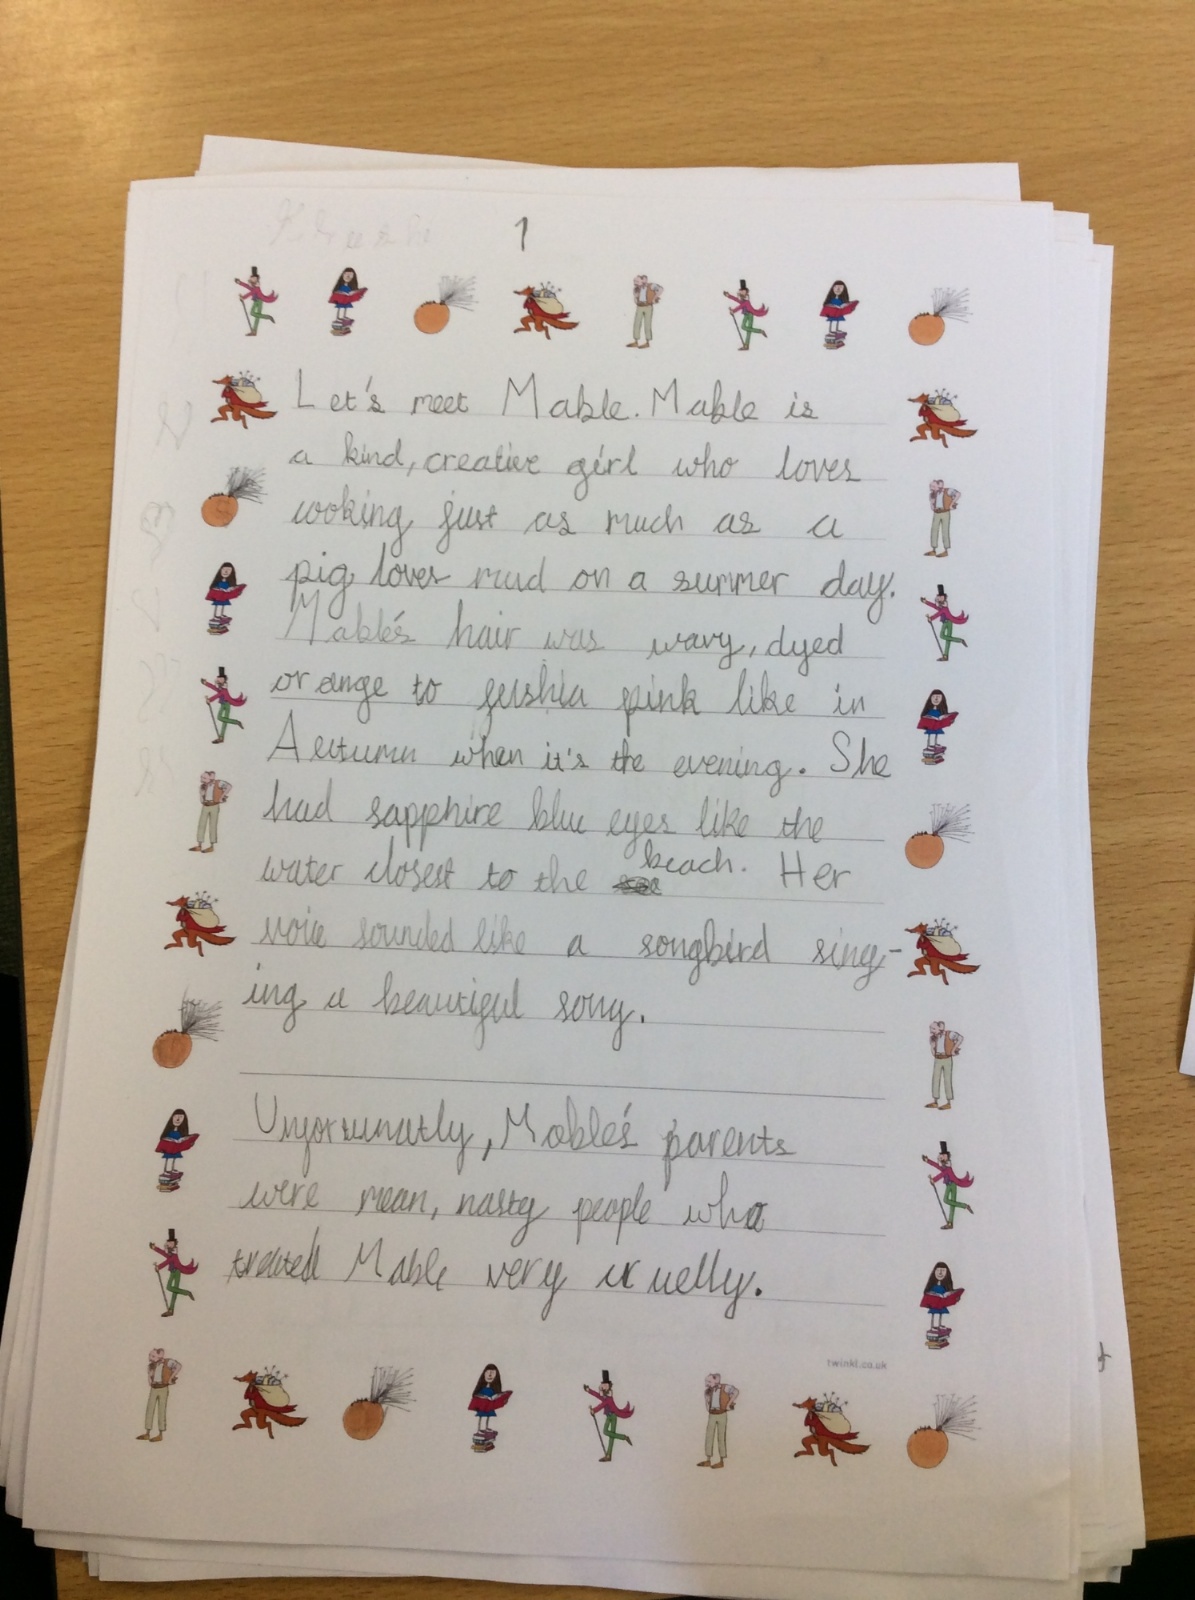 1
Let's meet Mable. Mable is
a kind, creative girl who loves
cooking just as much as a
pig loves mud on a summer day.
Mable's hair was wavy, dyed
orange to fushia pink like in
Autumn when it's the evening. She
had sapphire blue eyes like the
water closest to the beach. Her
voice sounded like a songbird sing-
ing a beautiful song.
Unfortunatly, Mable's parents
were mean, nasty people who
treated Mable very cruelly.
twinkl.co.uk